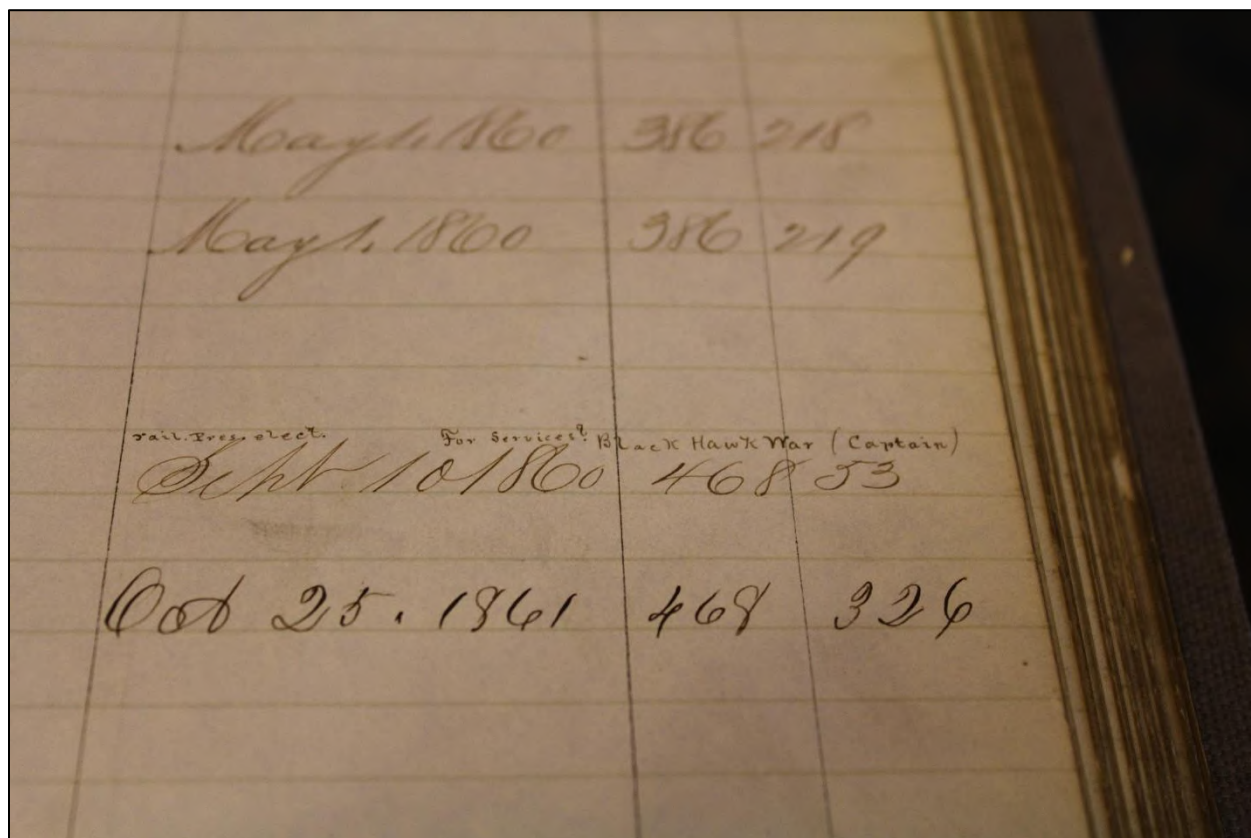 May 1. 1860 386 218
May 1. 1860 386 219
rail. Pres. elect. For Services Black Hawk War (Captain)
Sept 10 1860 468 53
Oct 25. 1861 468 326